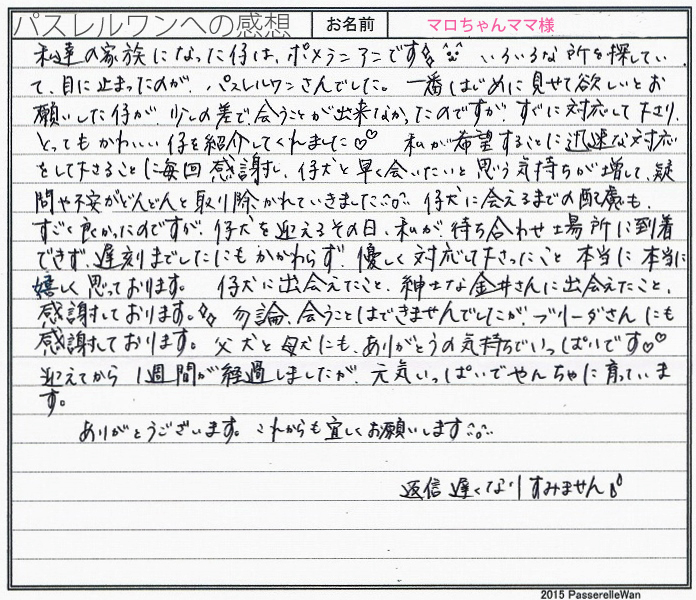 パスレルワンへの感想 お名前 マロちゃんママ様
私達の家族になった仔は、ポメラニアンです いろいろな所を探してい
て、目に止まったのが、パスレルワンさんでした。一番はじめに見せて欲しいとお
願いした仔が、少しの差で、会うことが出来なかったのですが、すぐに対応して下さり、
とってもかわいい仔を紹介してくれました♡♡ 私が希望することに迅速な対応
をして下さることに毎回感謝し、仔犬と早く会いたいと思う気持ちが増して、疑
問や不安がどんどんと取り除かれていきました 仔犬に会えるまでの配慮も、
すごく良かったのですが、仔犬を迎えるその日、私が、待ち合わせ場所に到着
できず、遅刻までしたにもかかわらず、優しく対応して下さったこと 本当に本当に
嬉しく思っております。 仔犬に出会えたこと、紳士な金井さんに出会えたこと、
感謝しております。 勿論、会うことはできませんでしたが、ブリーダさんにも
感謝しております。父犬と母犬にも、ありがとうの気持ちでいっぱいです♡♡
迎えてから 1週間が経過しましたが、元気いっぱいでやんちゃに育っていま
す。
ありがとうございます。これからも宜しくお願いします
返信遅くなりすみません
2015 PasserelleWan